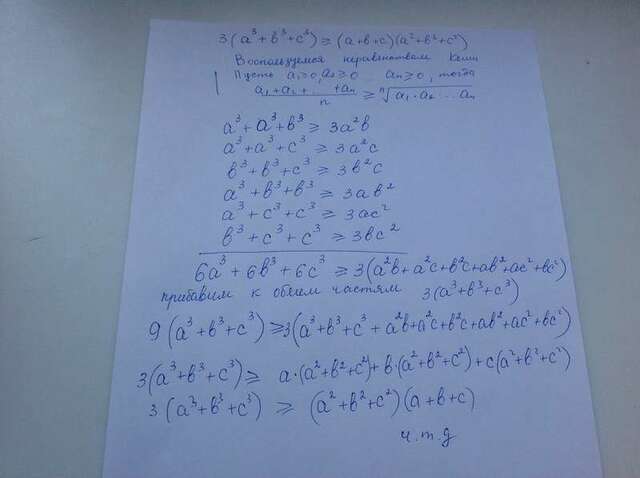 3(a³+b³+c³) ≥ (a+b+c)(a²+b²+c²)
Воспользуемся неравенством Коши
Пусть a₁≥0, a₂≥0 aₙ≥0, тогда
(a₁+a₂+...+aₙ)/n ≥ ⁿ√(a₁·a₂·...aₙ)
a³+a³+b³ ≥ 3a²b
a³+a³+c³ ≥ 3a²c
b³+b³+c³ ≥ 3b²c
a³+b³+b³ ≥ 3ab²
a³+c³+c³ ≥ 3ac²
b³+c³+c³ ≥ 3bc²
6a³+6b³+6c³ ≥ 3(a²b+a²c+b²c+ab²+ac²+bc²)
прибавим к обеим частям 3(a³+b³+c³)
9(a³+b³+c³) ≥ 3(a³+b³+c³+a²b+a²c+b²c+ab²+ac²+bc²)
3(a³+b³+c³) ≥ a·(a²+b²+c²)+b·(a²+b²+c²)+c(a²+b²+c²)
3(a³+b³+c³) ≥ (a²+b²+c²)(a+b+c)
ч.т.д